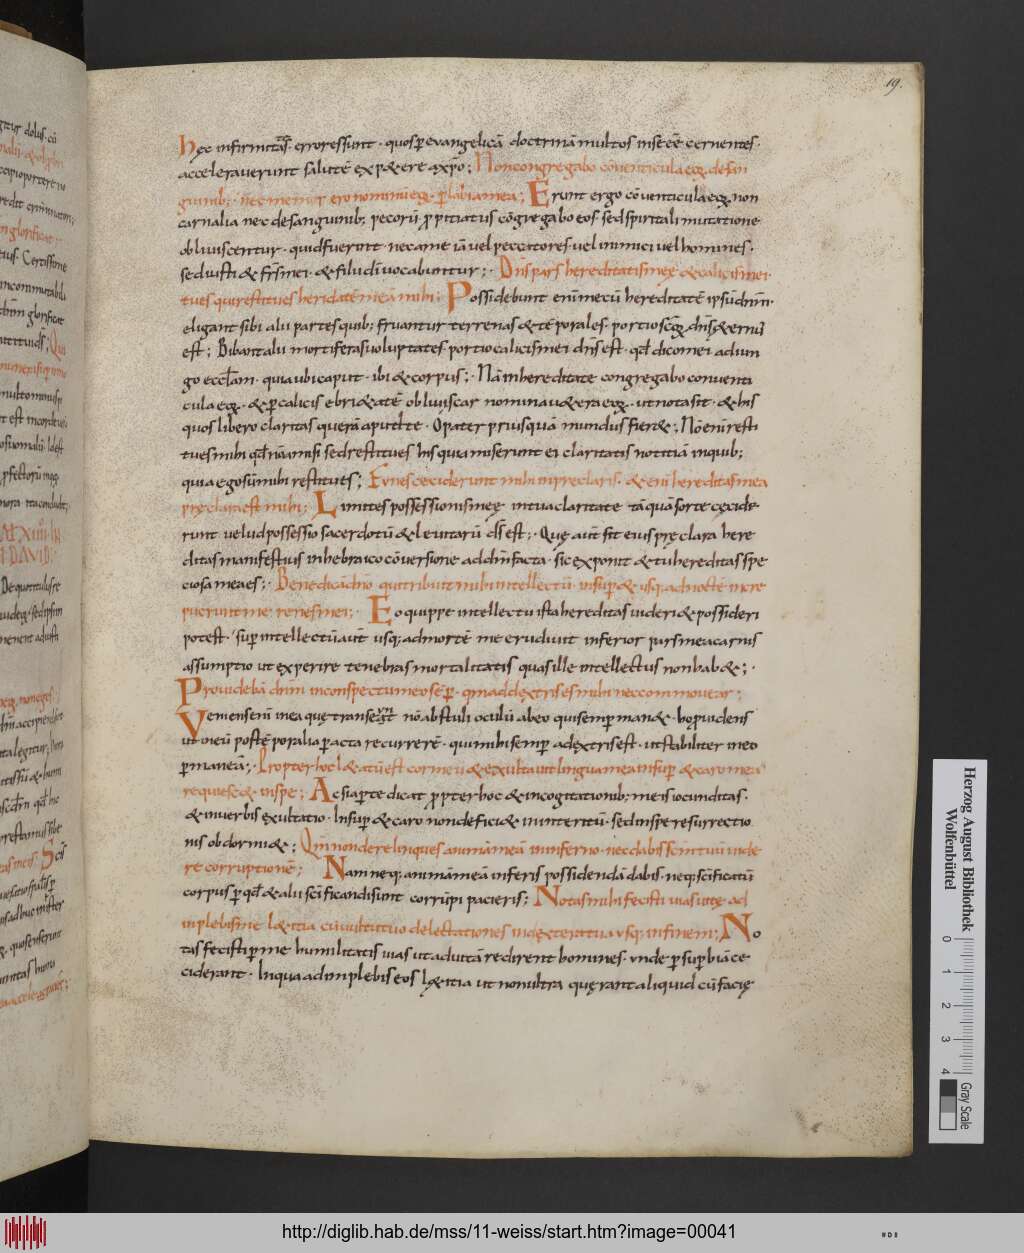 19.
hęc infirmitas errores sunt · quos p euangelicā doctrinā multos inse eē cernentes ·
accelerauerunt salutē exp&ere a xp̄o ; Non congregabo cōuenticula eoꝝ desan
guinib; · nec memor ero nominū eoꝝ · p labia mea ; Erunt ergo cōuenticula eoꝝ non
carnalia nec desanguinib; pecorū propitiatus cōgregabo eos · sed spiritali mutatione
obliuiscentur · quid fuerunt · nec a me iā uel peccatores uel inimici uel homines ·
sed iusti & frs̄ mei · & filii dī uocabuntur ; · Dn̄s pars hereditatis meę & calicis mei ·
tu es qui restitues heridatē meā mihi ; Possidebunt enī mecū hereditatē ipsū dn̄m ·
eligant sibi alii partes quib; fruantur terrenas & tēporales · portio sc̄oꝝ dn̄s &ernus
est ; Bibant alii mortiferas uoluptates · portio calicis mei dn̄s est · qd̄ dico mei adiun
go eccl̄am · quia ubi caput · ibi & corpus ; · Nā in hereditate congregabo conuenti
cula eoꝝ · & p calicis ebri&atē obliuiscar nomina u&era eoꝝ · ut nota sit · & his
quos libero claritas quę erā aput te · O pater priusquā mundus fier& ; Nō enī resti
tues mihi qd̄ nō amisi sed restitues his qui amiserunt ei claritatis notitiā inquib;
quia ego sū mihi restitues ; Funes ceciderunt mihi in preclaris · & enī hereditas mea
pręclara est mihi ; Limites possessionis meę in tua claritate tāquā sorte cęcide
runt uelud possessio sacerdotū & leuitarū ds̄ est ; · Quę aūt sit eius pręclara here
ditas manifestius in hebraico cōuersione ad dn̄m facta · sic exponit & tu hereditas spe
ciosa mea es ; · Benedicā dn̄o qui tribuit mihi intellectū · insup & usq; ad noctē incre
puerunt me renes mei ; · Eo quippe intellectu ista hereditas uideri & possideri
potest · sup intellectū aūt usq; ad mortē me erudiuit inferior pars mea carnis
assumptio ut experire tenebras mortalitatis quas ille intellectus non hab& ; ·
Prouidebā dnm in conspectu meo sēp · qm̄ ad dextris est mihi nec commouear ;
Veniens enī in ea quę transeunt nō abstuli oculū ab eo qui semp man& · hoc prouidens
ut in eū post tēporalia pacta recurrerē · qui mihi semp a dextris est · ut stabiliter in eo
pmaneā ; · Propter hoc l&atū est cor meū & exultauit lingua mea insup & caro mea
requiesc& in spe ; Ac si apte dicat propter hoc & in cogitationib; meis iocunditas ·
& in uerbis exultatio · Insup & caro non defici& in interitū · sed in spe resurrectio
nis obdormi& ; Qm̄ non derelinques animā meā in inferno · nec dabis sc̄m tuū uide
re corruptionē ; Nam neq; animā mea inferis possidendā dabis · neq; sc̄ificatū
corpus p qd̄ & alii sc̄ificandi sunt corrūpi pacieris ; Notas mihi fecisti uias uitę ad
implebis me l&itia cū uultu tuo delectationes in dextera tua usq; in finem ; No
tas fecisti p me humilitatis uias ut ad uitā redirent homines · unde p supbiā ce
ciderant · In qua adimplebis eos l&itia ut non ultra quęrant aliquid cū facię
Herzog August Bibliothek
Wolfenbüttel
0 1 2 3 4
Gray Scale
http://diglib.hab.de/mss/11-weiss/start.htm?image=00041